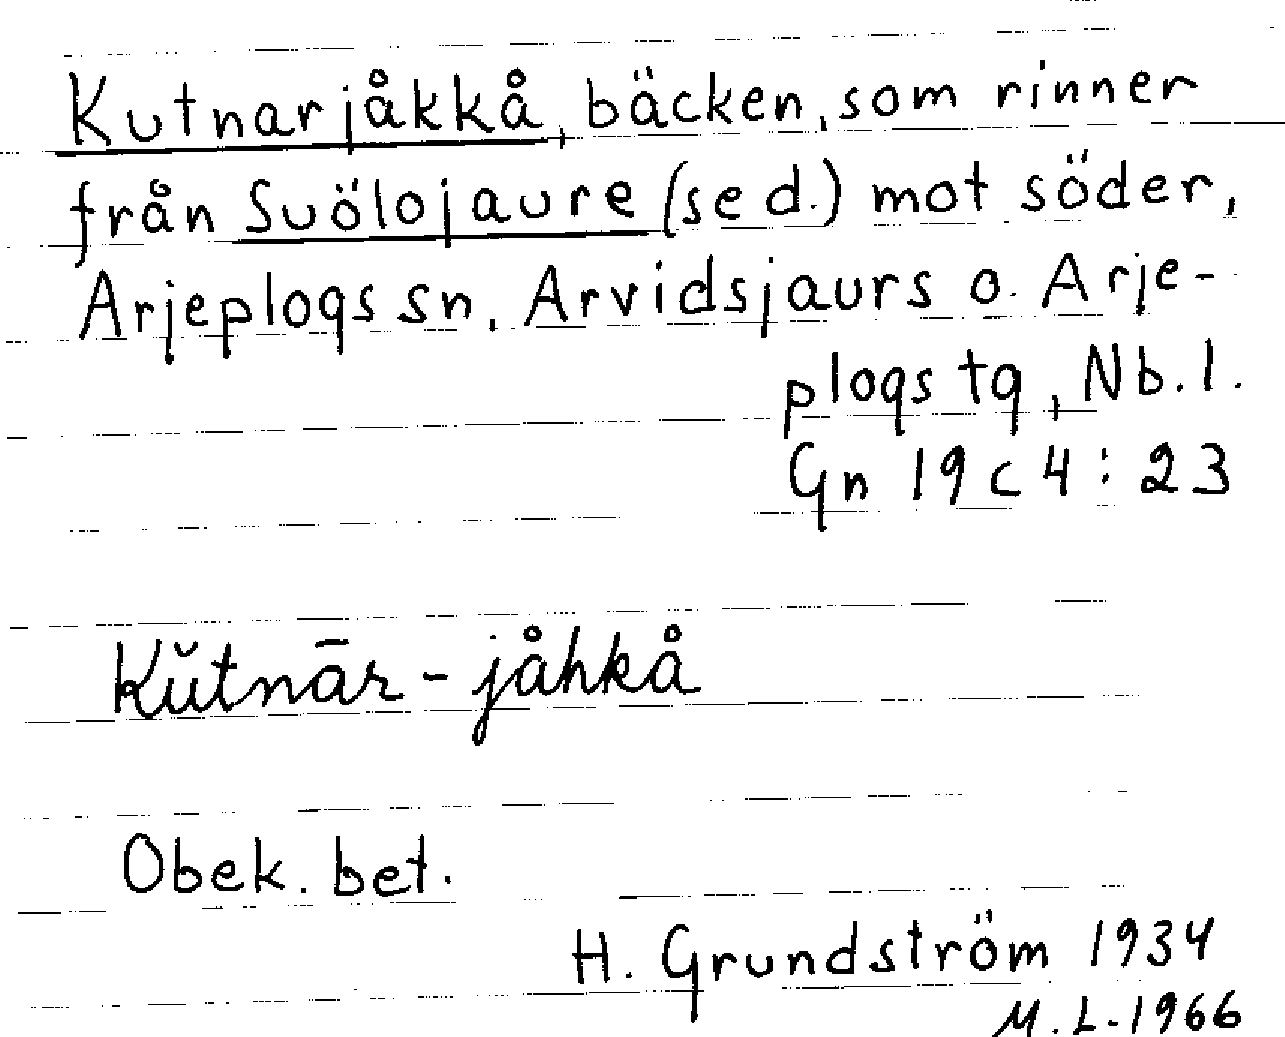 Kutnarjåkkå, bäcken, som rinner
från Suölojaure (se d.) mot söder,
Arjeplogs sn, Arvidsjaurs o. Arje-
plogs tg, Nb. l.
Gn 19 c 4 : 23
Kŭtnār-jåhkå
Obek. bet.
H. Grundström 1934
M. L. 1966